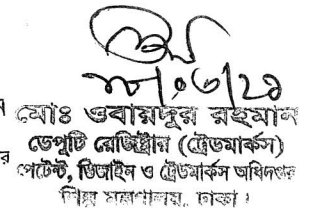 মোঃ ওবায়দুর রহমান
ডেপুটি রেজিস্ট্রার (ট্রেডমার্কস)
পেটেন্ট, ডিজাইন ও ট্রেডমার্কস অধিদপ্তর
শিল্প মন্ত্রণালয়, ঢাকা।